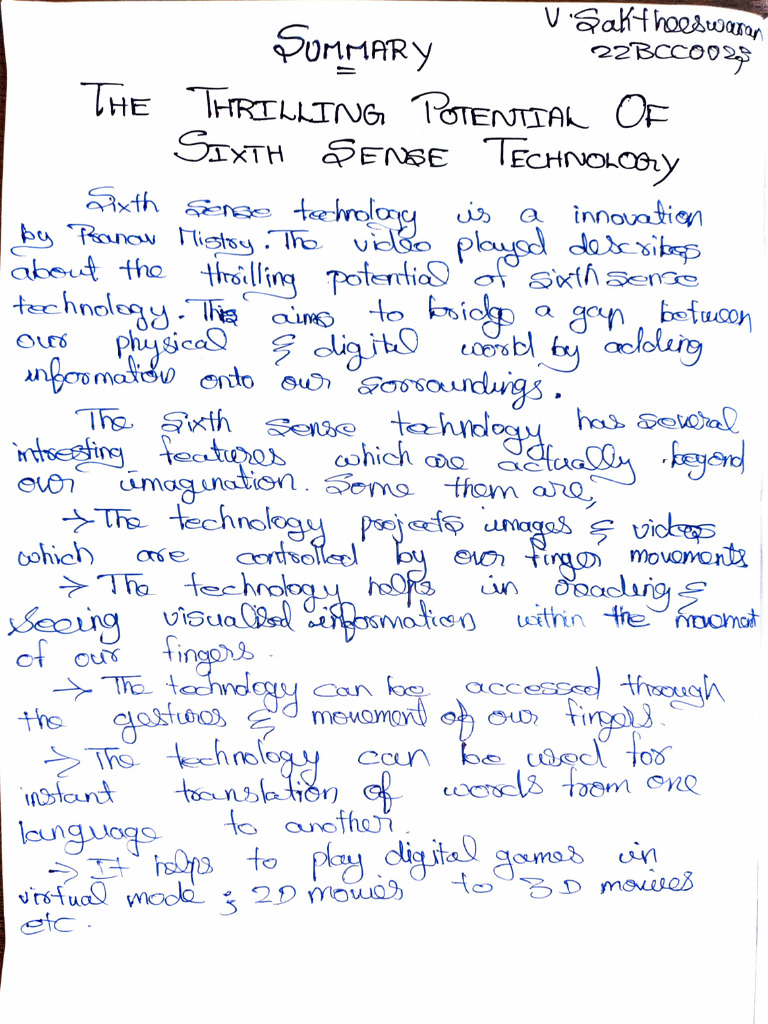 V. Saktheeswaran
22BCC0025
SUMMARY
THE THRILLING POTENTIAL OF
SIXTH SENSE TECHNOLOGY
Sixth sense technology is a innovation
by Pranav Mistry. The video played describes
about the thrilling potential of sixth sense
technology. This aims to bridge a gap between
our physical & digital world by adding
information onto our sorroundings.
The sixth sense technology has several
intresting features which are actually beyond
our imagination. Some them are,
→ The technology projects images & videos
which are controlled by our finger movements
→ The technology helps in reading &
seeing visualised information within the movement
of our fingers.
→ The technology can be accessed through
the gestures & movement of our fingers.
→ The technology can be used for
instant translation of words from one
language to another.
→ It helps to play digital games in
virtual mode & 2D movies to 3D movies
etc.